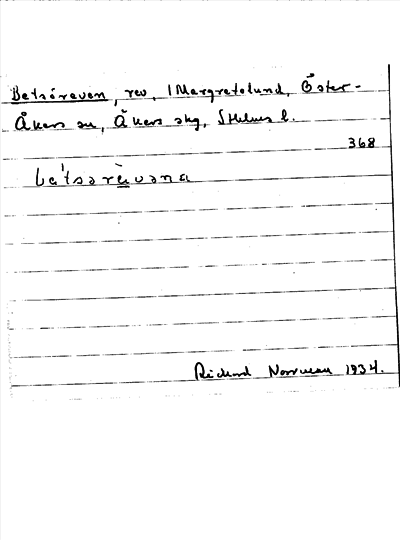 Betsöreven, rev, 1 Margretelund, Öster-
Åkers sn, Åkers skg, Sthlms l.
368
bétsərèvəna
Rickard Norrman 1934.